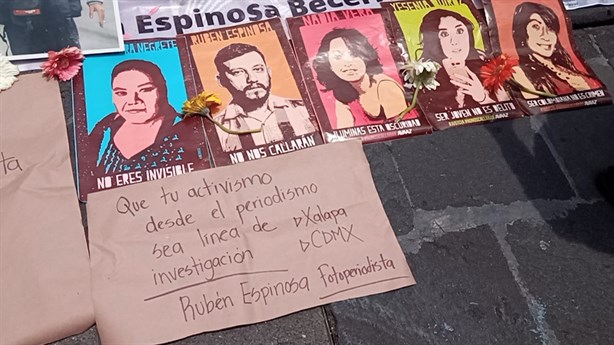 Espinosa Becerril
RA NEGRETE
RUBÉN ESPINOSA
NADIA VERA
YESENIA
NO ERES INVISIBLE
NO NOS CALLARÁN
ILUMINAS ESTA OSCURIDAD
SER JOVEN NO ES DELITO
SER COLOMBIANA NO ES CRIMEN
Que tu activismo
desde el periodismo
sea línea de
investigación
▷Xalapa
▷CDMX
Rubén Espinosa Fotoperiodista